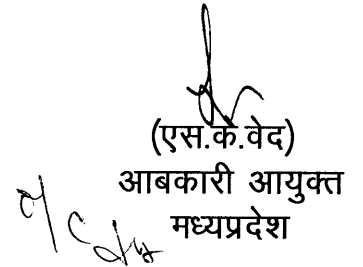 (एस.के.वेद)
आबकारी आयुक्त
मध्यप्रदेश